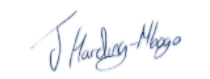 J Harding-Mbogo